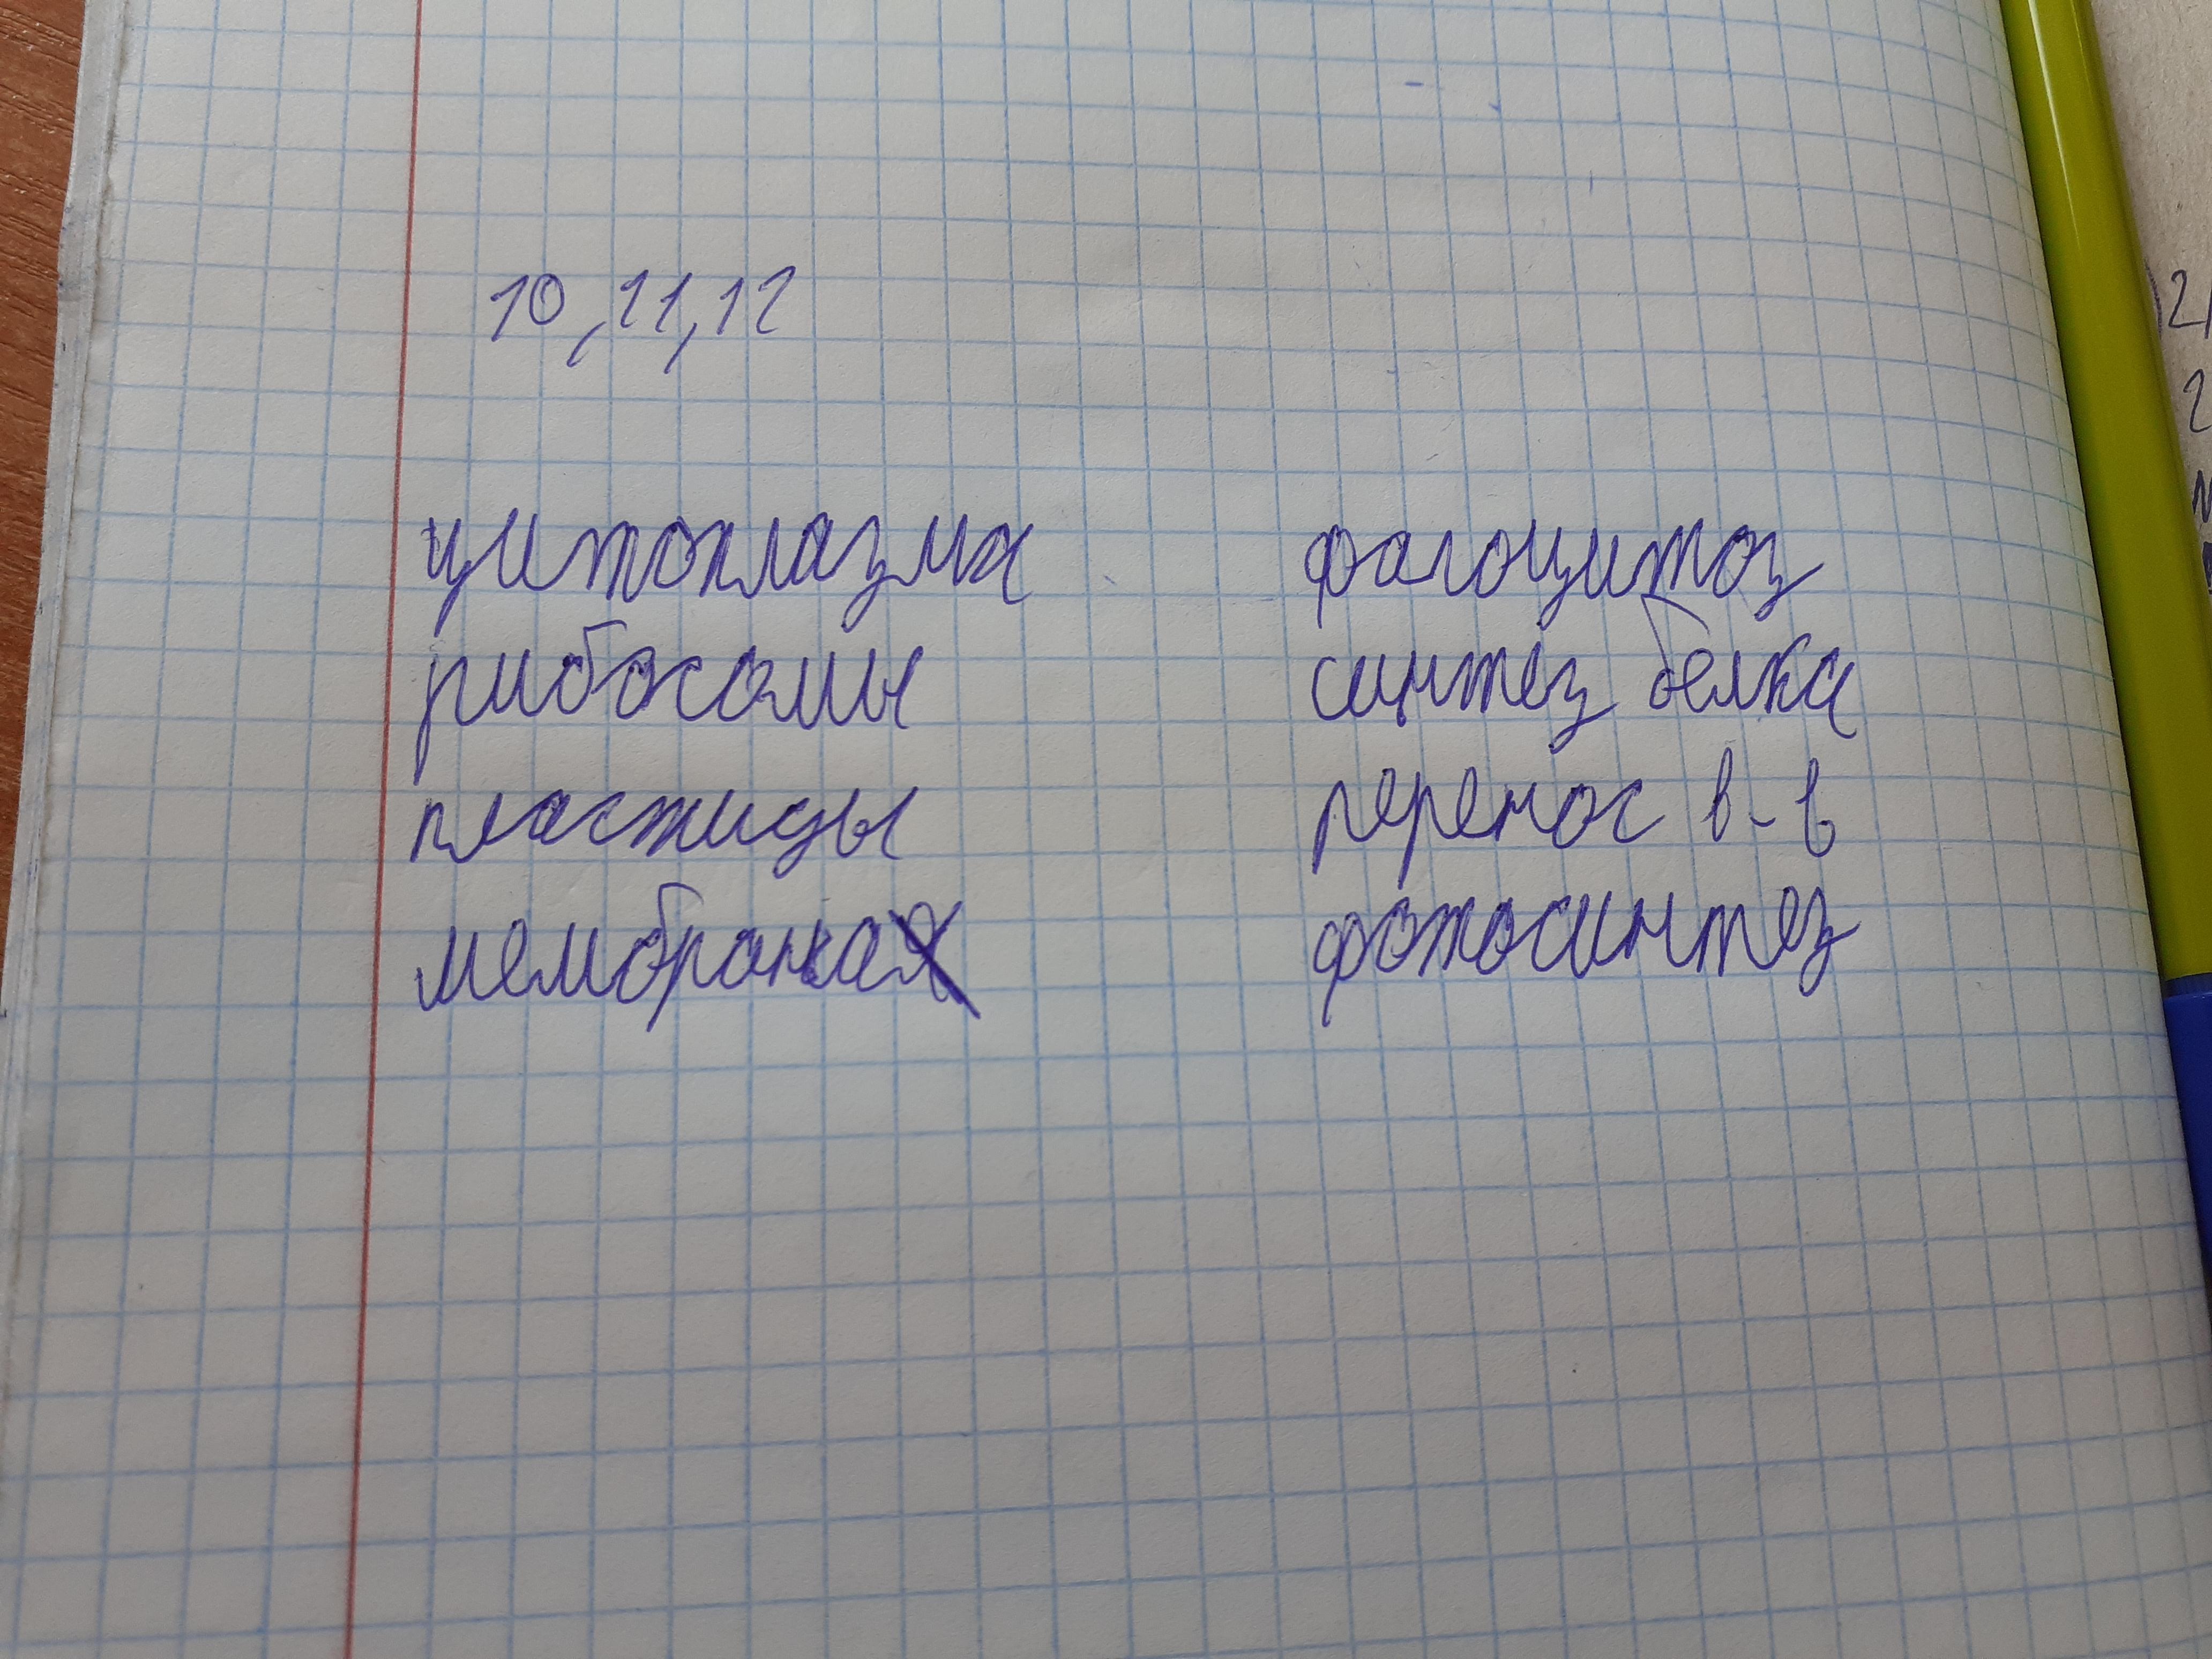 10, 11, 12
цитоплазма фагоцитоз
рибосомы синтез белка
пластиды перенос в-в
мембрана фотосинтез
2
2